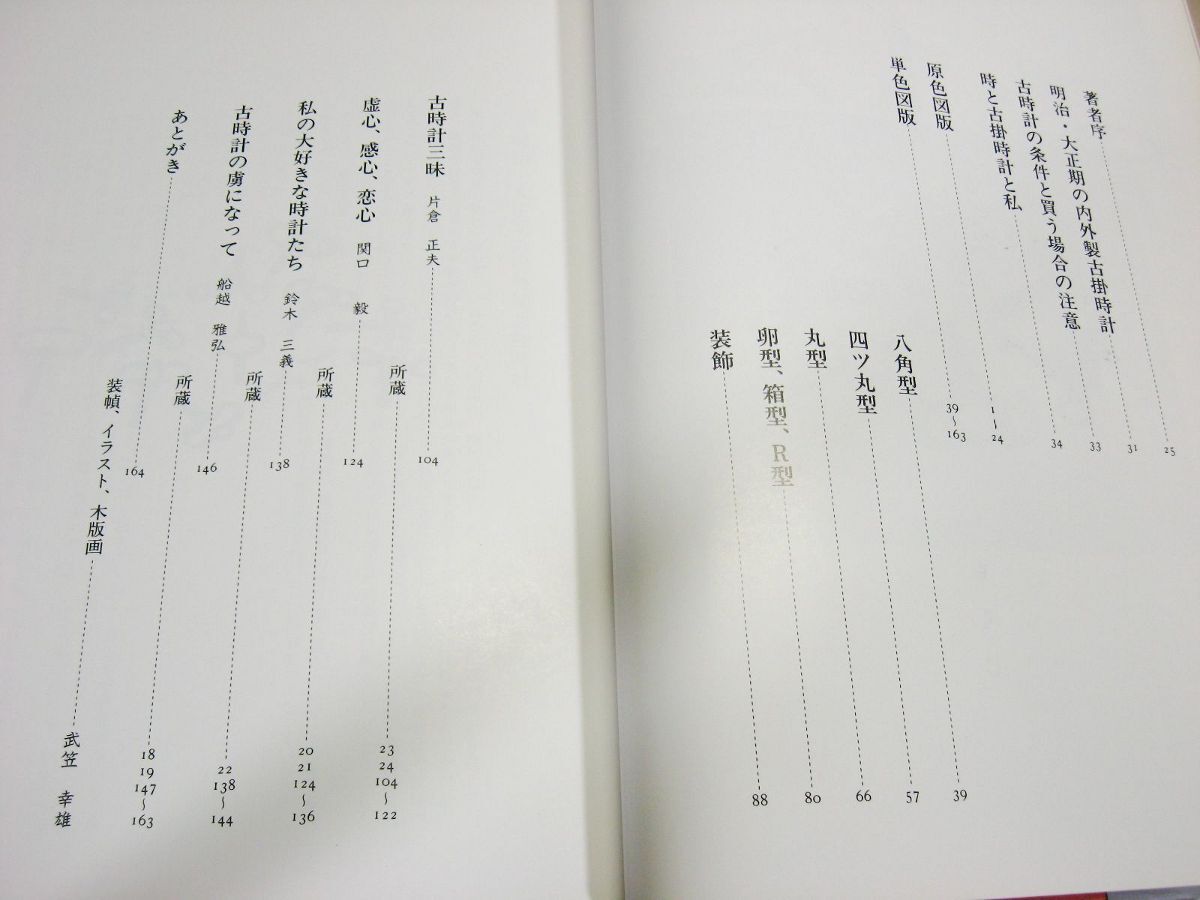 著者序 25
明治・大正期の内外製古掛時計 31
古時計の条件と買う場合の注意 33
時と古掛時計と私 34
原色図版 1〜24
単色図版 39〜163
八角型 39
四ツ丸型 57
丸型 66
卵型、箱型、R型 80
装飾 88
古時計三昧 片倉 正夫 104
所蔵 23 24 104〜122
虚心、感心、恋心 関口 毅 124
所蔵 20 21 124〜136
私の大好きな時計たち 鈴木 三義 138
所蔵 22 138〜144
古時計の虜になって 船越 雅弘 146
所蔵 18 19 147〜163
あとがき 164
装幀、イラスト、木版画 武笠 幸雄